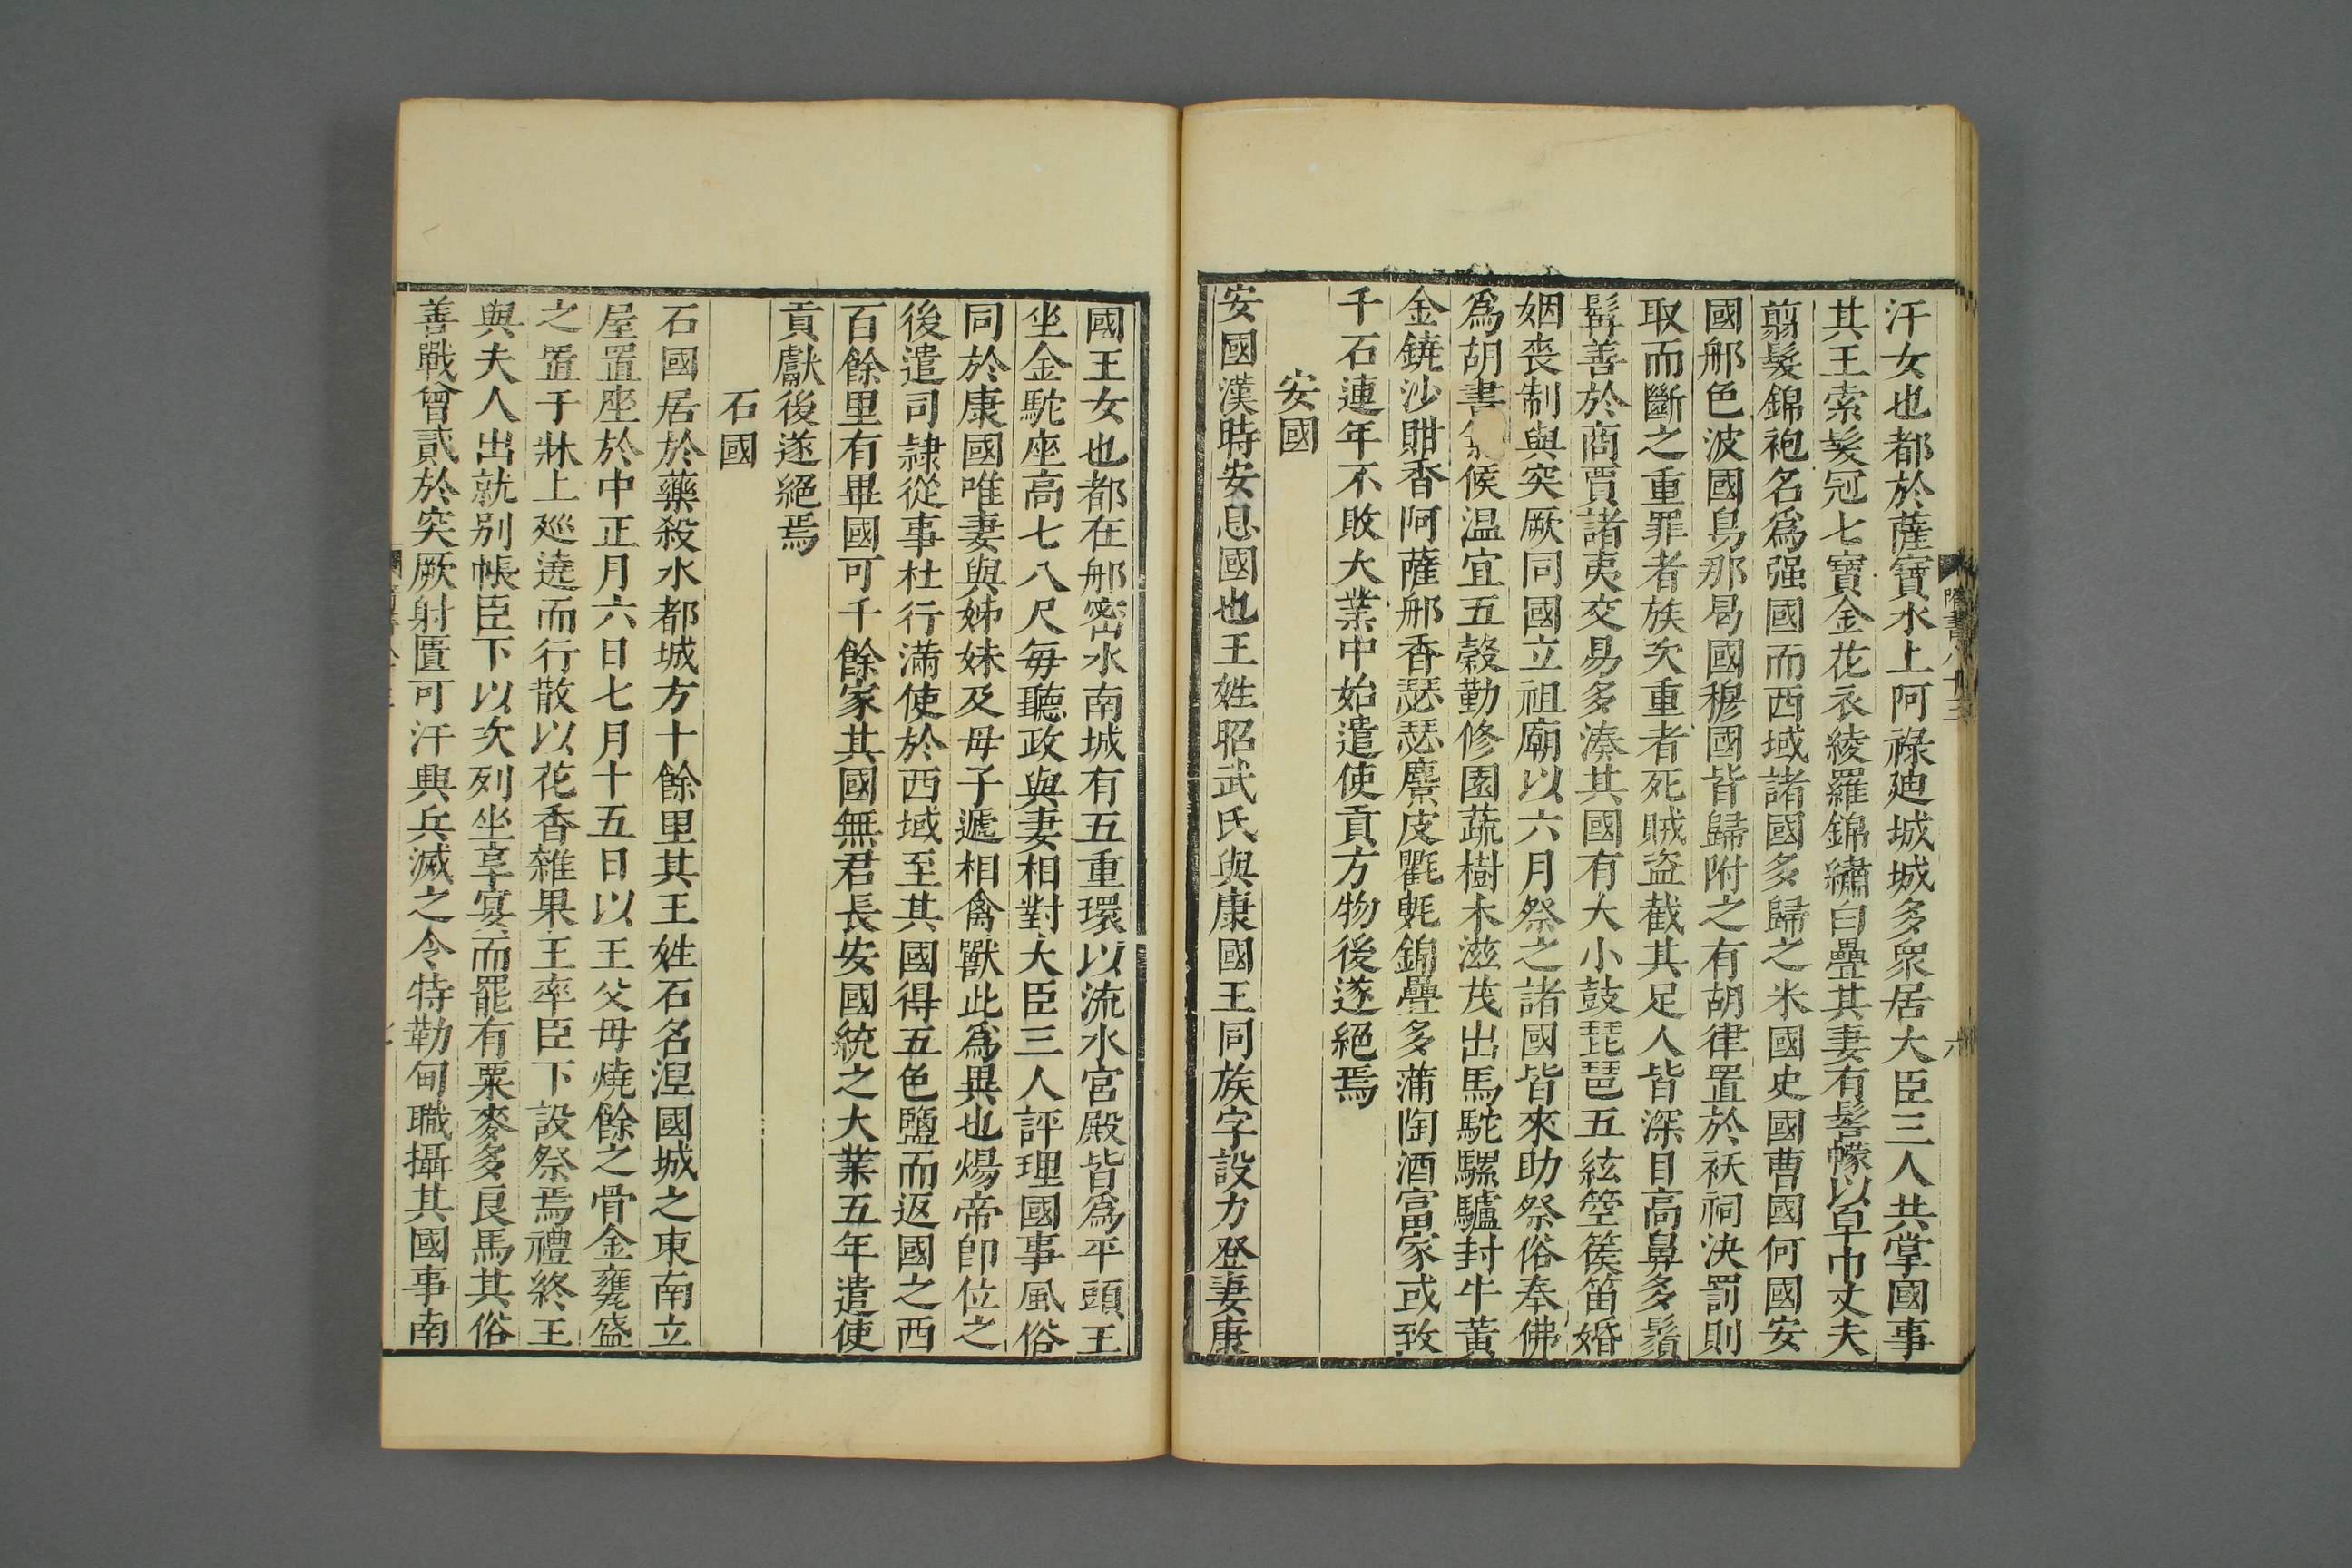 汗女也都於薩寶水上阿祿廸城城多衆居大臣三人共掌國事
其王索髮冠七寶金花衣綾羅錦繡白疊其妻有髻幪以皁巾丈夫
翦髮錦袍名爲强國而西域諸國多歸之米國史國曹國何國安
國郍色波國烏那曷國穆國皆歸附之有胡律置於祆祠決罰則
取而斷之重罪者族次重者死賊盜截其足人皆深目高鼻多鬚
髯善於商賈諸夷交易多湊其國有大小鼓琵琶五絃箜篌笛婚
姻喪制與突厥同國立祖廟以六月祭之諸國皆來助祭俗奉佛
爲胡書候温宜五穀勤修園蔬樹木滋茂出馬駝騾驢封牛黃
金鐃沙䏙香阿薩郍香瑟瑟麖皮氍㲣錦疊多蒲陶酒富家或致
千石連年不敗大業中始遣使貢方物後遂絕焉
安國
安國漢時安息國也王姓昭武氏與康國王同族字設力登妻康
國王女也都在郍密水南城有五重環以流水宮殿皆爲平頭王
坐金駝座高七八尺每聽政與妻相對大臣三人評理國事風俗
同於康國唯妻與姊妹及母子遞相禽獸此爲異也煬帝卽位之
後遣司隷從事杜行滿使於西域至其國得五色鹽而返國之西
百餘里有畢國可千餘家其國無君長安國統之大業五年遣使
貢獻後遂絕焉
石國
石國居於藥殺水都城方十餘里其王姓石名涅國城之東南立
屋置座於中正月六日七月十五日以王父母燒餘之骨金甕盛
之置于牀上廵遶而行散以花香雜果王率臣下設祭焉禮終王
與夫人出就别帳臣下以次列坐享宴而罷有粟麥多良馬其俗
善戰曾貳於突厥射匱可汗興兵滅之令特勒甸職攝其國事南
隋書八十三
六